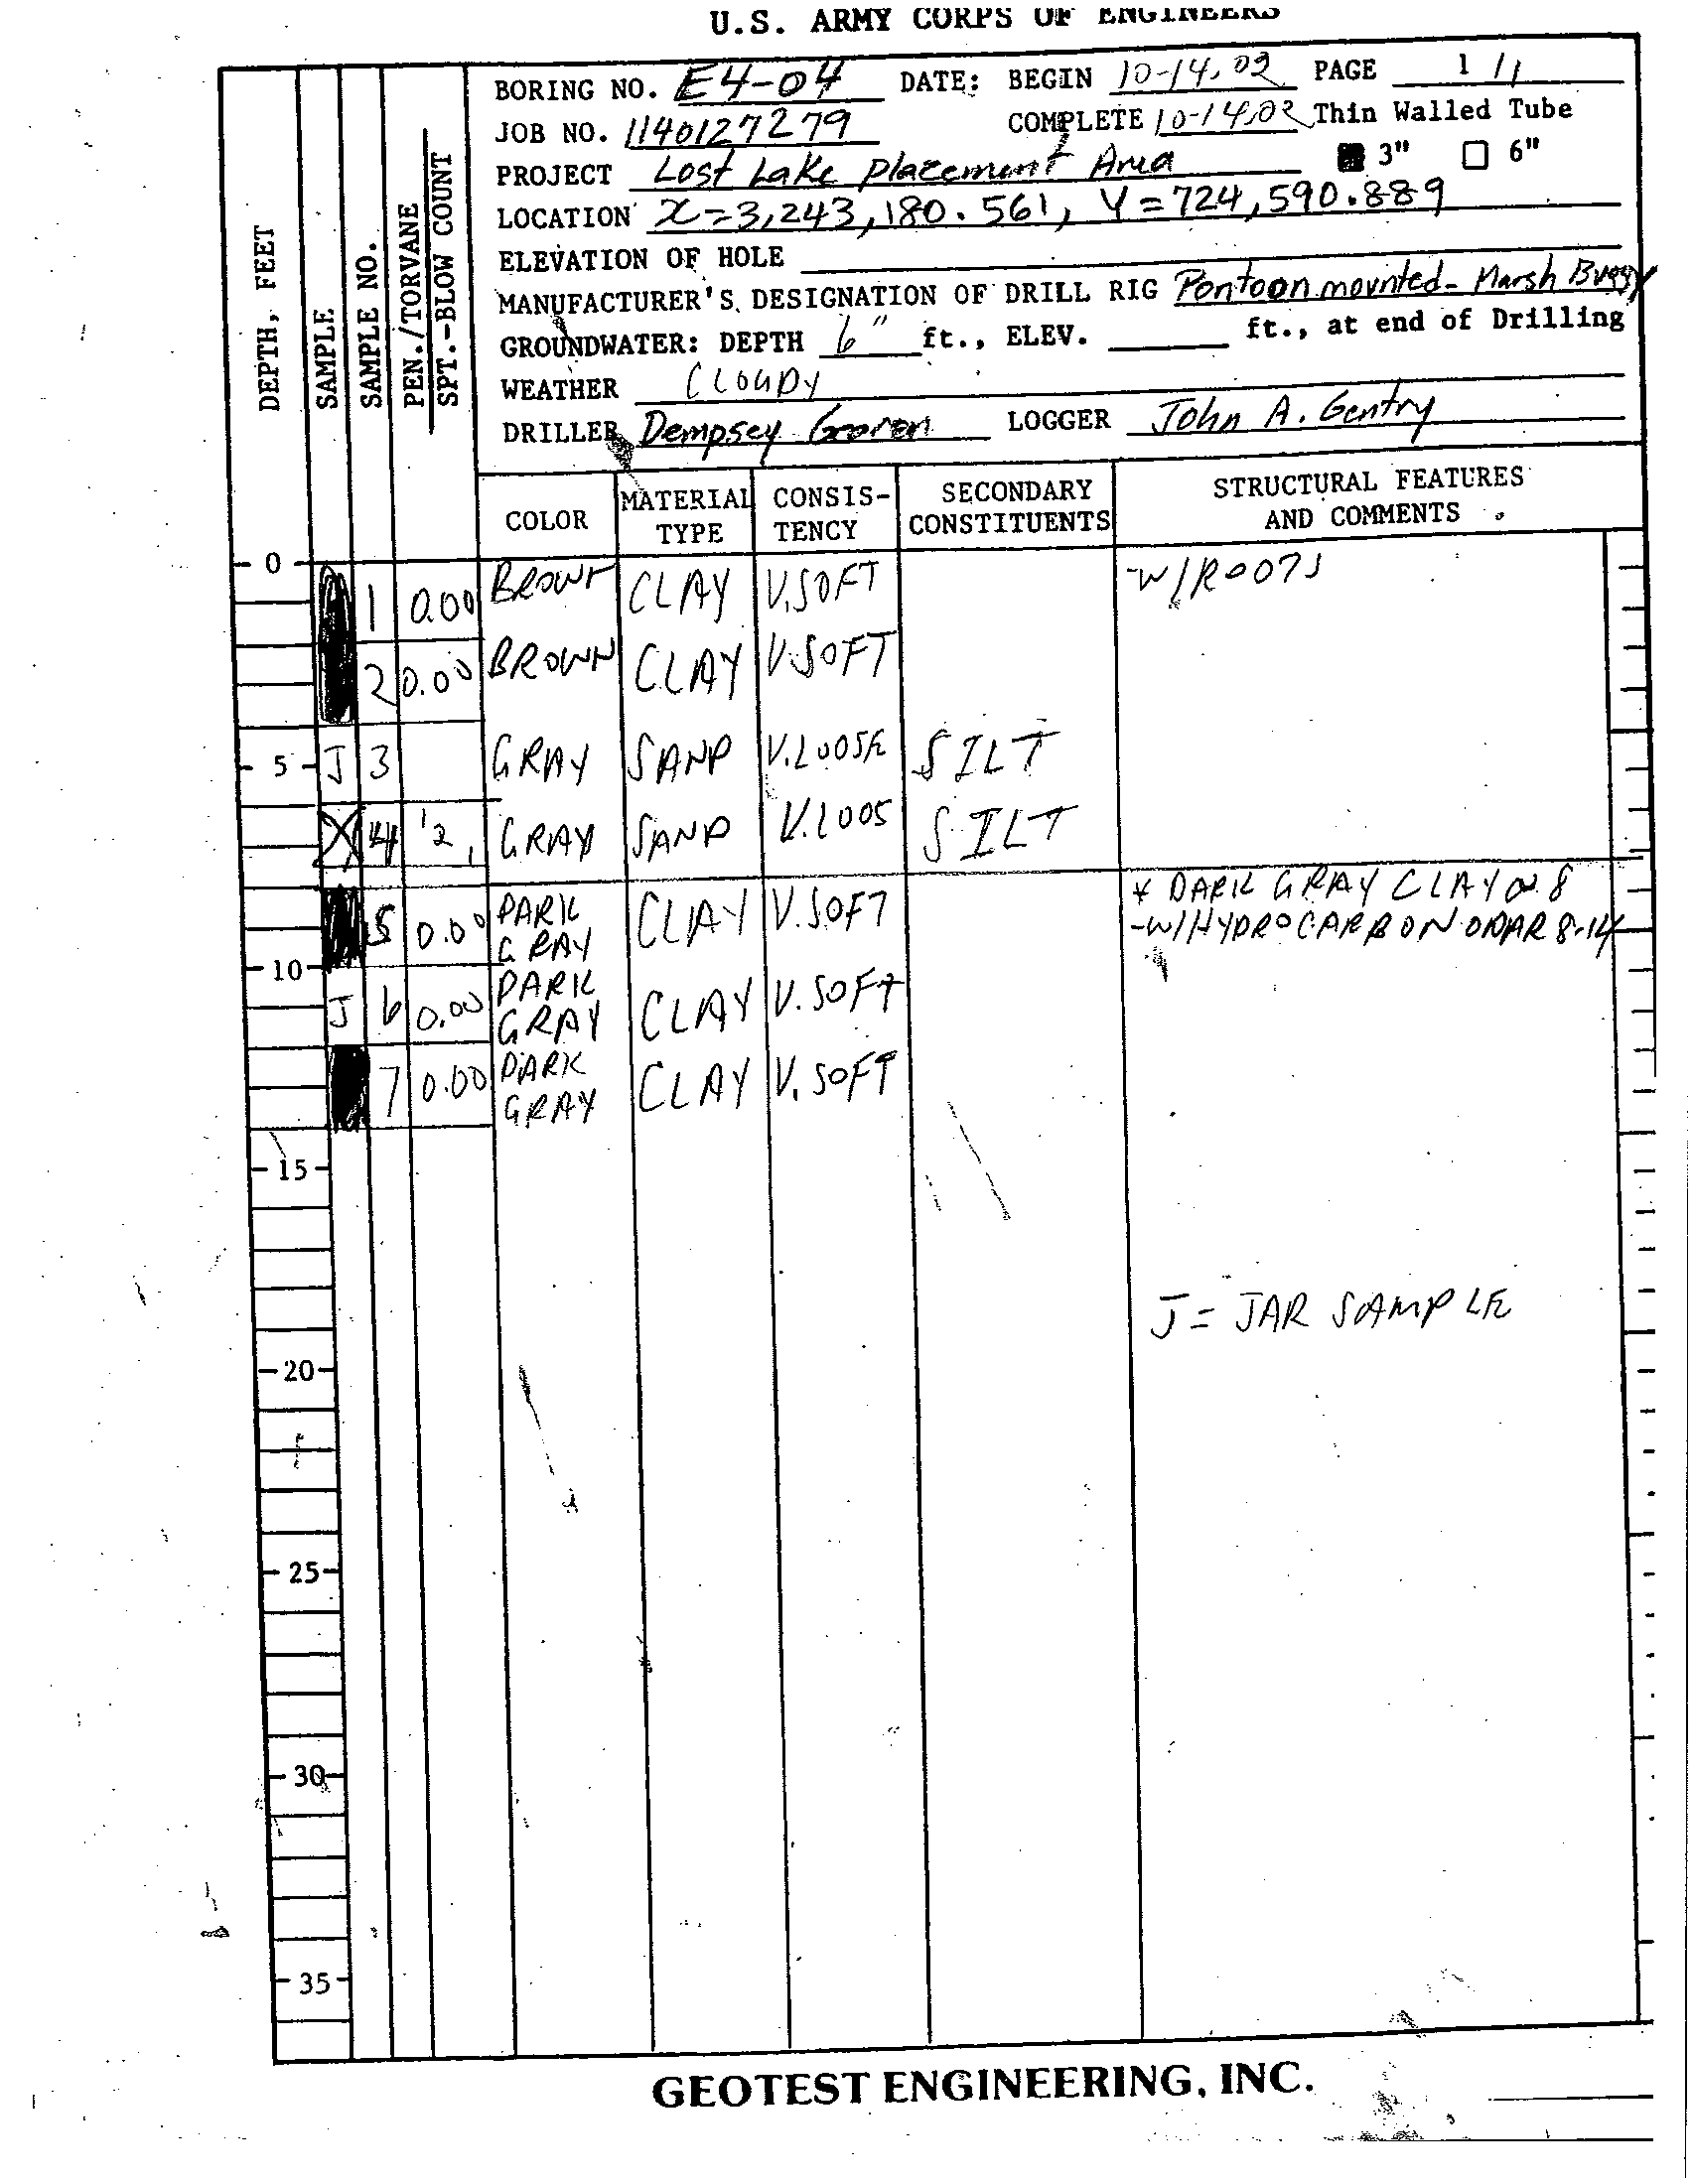 U.S. ARMY CORPS OF ENGINEERS
BORING NO. E4-04 DATE: BEGIN 10-14-02 PAGE 1/1
JOB NO. 1140127279 COMPLETE 10-14-02 Thin Walled Tube
PROJECT Lost Lake Placement Area 3" 6"
LOCATION X=3,243,180.561, Y=724,590.889
ELEVATION OF HOLE
MANUFACTURER'S DESIGNATION OF DRILL RIG Pontoon mounted- Marsh Buggy
GROUNDWATER: DEPTH 6" ft., ELEV. ft., at end of Drilling
WEATHER CLOUDY
DRILLER Dempsey LOGGER John A. Gentry
DEPTH, FEET
SAMPLE
SAMPLE NO.
PEN./TORVANE
SPT.-BLOW COUNT
COLOR MATERIAL TYPE CONSIS-TENCY SECONDARY CONSTITUENTS STRUCTURAL FEATURES AND COMMENTS
0
1 0.00 BROWN CLAY V.SOFT -W/ROOTS
2 0.00 BROWN CLAY V.SOFT
5 J 3 GRAY SAND V.LOOSE SILT
4 1 2 1 GRAY SAND V.LOOS SILT
* DARK GRAY CLAY @ 8
5 0.00 DARK GRAY CLAY V.SOFT -W/HYDROCARBON ODAR 8-14
10
J 6 0.00 DARK GRAY CLAY V.SOFT
7 0.00 DARK GRAY CLAY V.SOFT
15
J = JAR SAMPLE
20
25
30
35
GEOTEST ENGINEERING, INC.